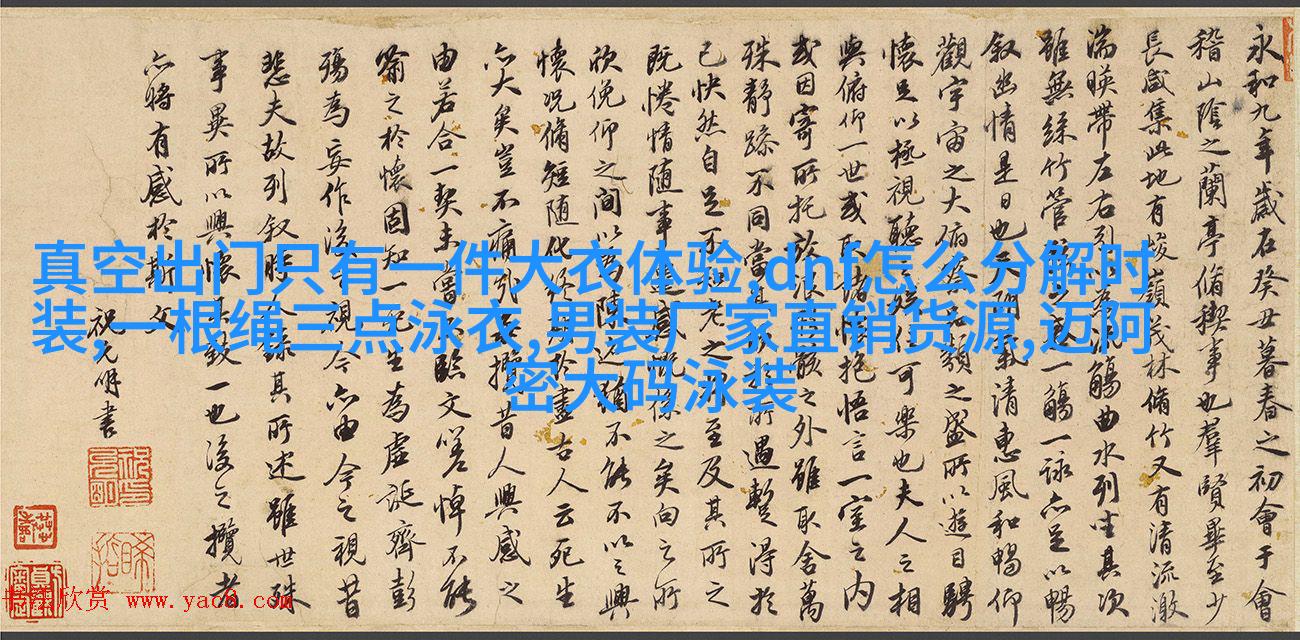 永和九年歲在癸丑暮春之初會于會
稽山陰之蘭亭脩稧事也羣賢畢至少
長咸集此地有峻嶺茂林脩竹又有清流激
湍暎帶左右引以為流觴曲水列坐其次
雖無絲竹管弦之盛一觴一詠亦足以暢
叙幽情是日也天朗氣清惠風和暢仰
觀宇宙之大俯察品類之盛所以遊目騁
懷足以極視聽之娛信可樂也夫人之相
與俯仰一世或取諸懷抱悟言一室之內
或因寄所托放浪形骸之外雖取舍萬
殊靜躁不同當其欣於所遇蹔得於
己快然自足不知老之將至及其所之
既惓情隨事遷感慨係之矣向之所
欣俛仰之間以為陳迹猶不能不以之興
懷況脩短隨化終期於盡古人云死生
亦大矣豈不痛哉每攬昔人興感之
由若合一契未嘗不臨文嗟悼不能
喻之於懷固知一死生為虛誕齊彭
殤為妄作後之視今亦由今之視昔
悲夫故列叙時人錄其所述雖世殊
事異所以興懷其致一也後之攬者
亦將有感於斯文
祝允明書
真空出门只有一件大衣体验,dnf怎么分解时
装,一根绳三点泳衣,男装厂家直销货源,迈阿
密大码泳装
书法欣赏 www.yac8.com